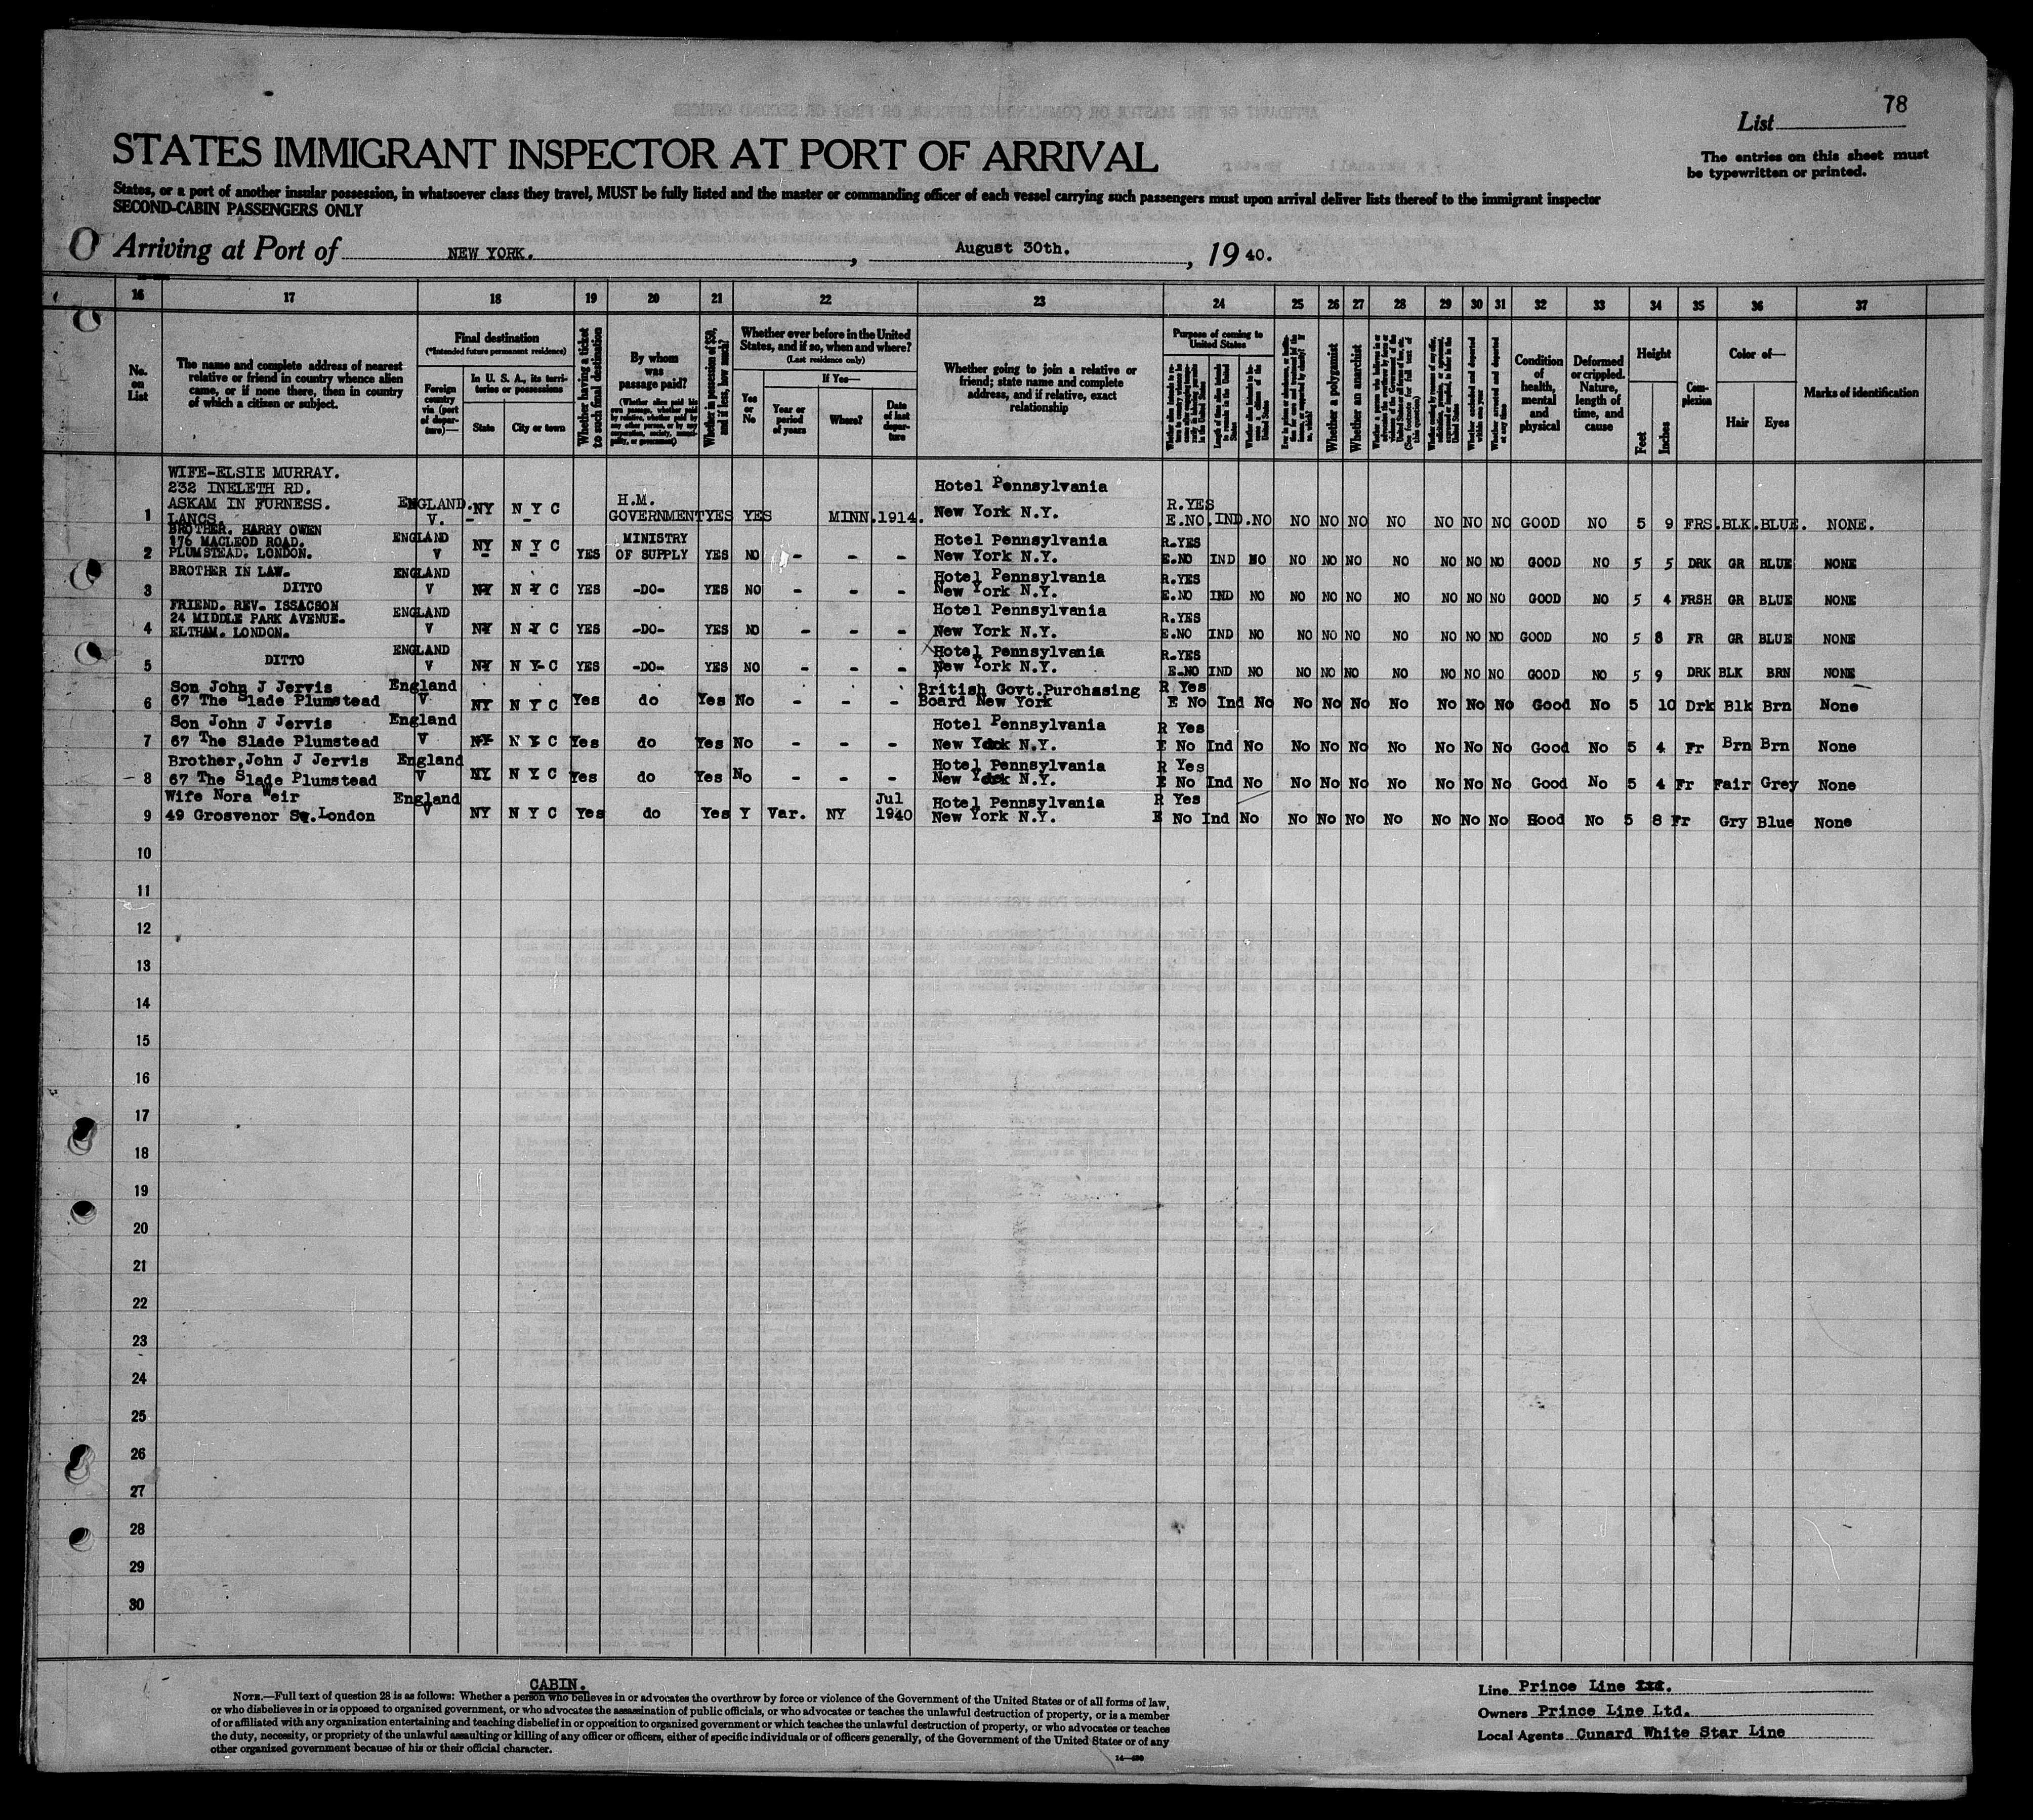 78
List
The entries on this sheet must
be typewritten or printed.
STATES IMMIGRANT INSPECTOR AT PORT OF ARRIVAL
States, or a port of another insular possession, in whatsoever class they travel, MUST be fully listed and the master or commanding officer of each vessel carrying such passengers must upon arrival deliver lists thereof to the immigrant inspector
SECOND-CABIN PASSENGERS ONLY
Arriving at Port of NEW YORK. , August 30th. , 19 40.
16 17 18 19 20 21 22 23 24 25 26 27 28 29 30 31 32 33 34 35 36 37
No. on List
The name and complete address of nearest
relative or friend in country whence alien
came, or if none there, then in country
of which a citizen or subject.
Final destination
(*Intended future permanent residence)
Foreign country via (port of departure)—
In U. S. A., its territories or possessions
State
City or town
Whether having a ticket to such final destination
By whom was passage paid?
(Whether alien paid his own passage, whether paid by relative, whether paid by any other person, or by any corporation, society, municipality, or government)
Whether in possession of $50, and if less, how much?
Whether ever before in the United
States, and if so, when and where?
(Last residence only)
Yes or No
If Yes—
Year or period of years
Where?
Date of last departure
Whether going to join a relative or
friend; state name and complete
address, and if relative, exact
relationship
Purpose of coming to United States
Length of time alien intends to remain in the United States
Whether a polygamist
Whether an anarchist
Whether arrested and deported at any time
Condition of health, mental and physical
Deformed or crippled. Nature, length of time, and cause
Height
Feet
Inches
Complexion
Color of—
Hair
Eyes
Marks of identification
WIFE-ELSIE MURRAY.
232 INELETH RD.
ASKAM IN FURNESS.
LANCS.
1 ENGLAND. V. NY N Y C H.M. GOVERNMENT YES YES MINN. 1914. Hotel Pennsylvania New York N.Y. R.YES E.NO. IND. NO NO NO NO NO NO NO NO GOOD NO 5 9 FRS. BLK. BLUE. NONE.
BROTHER. HARRY OWEN
176 MACLEOD ROAD.
PLUMSTEAD. LONDON.
2 ENGLAND V NY N Y C YES MINISTRY OF SUPPLY YES NO - - - Hotel Pennsylvania New York N.Y. R.YES E.NO IND NO NO NO NO NO NO NO NO GOOD NO 5 5 DRK GR BLUE NONE
BROTHER IN LAW.
DITTO
3 ENGLAND V NY N Y C YES -DO- YES NO - - - Hotel Pennsylvania New York N.Y. R.YES E.NO IND NO NO NO NO NO NO NO NO GOOD NO 5 4 FRSH GR BLUE NONE
FRIEND. REV. ISSACSON
24 MIDDLE PARK AVENUE.
ELTHAM. LONDON.
4 ENGLAND V NY N Y C YES -DO- YES NO - - - Hotel Pennsylvania New York N.Y. R.YES E.NO IND NO NO NO NO NO NO NO NO GOOD NO 5 8 FR GR BLUE NONE
DITTO
5 ENGLAND V NY N Y C YES -DO- YES NO - - - Hotel Pennsylvania New York N.Y. R.YES E.NO IND NO NO NO NO NO NO NO NO GOOD NO 5 9 DRK BLK BRN NONE
Son John J Jervis
67 The Slade Plumstead
6 England V NY N Y C Yes do Yes No - - - British Govt.Purchasing Board New York R Yes E No Ind No No No No No No No No Good No 5 10 Drk Blk Brn None
Son John J Jervis
67 The Slade Plumstead
7 England V NY N Y C Yes do Yes No - - - Hotel Pennsylvania New York N.Y. R Yes E No Ind No No No No No No No No Good No 5 4 Fr Brn Brn None
Brother,John J Jervis
67 The Slade Plumstead
8 England V NY N Y C Yes do Yes No - - - Hotel Pennsylvania New York N.Y. R Yes E No Ind No No No No No No No No Good No 5 4 Fr Fair Grey None
Wife Nora Weir
49 Grosvenor Sq.London
9 England V NY N Y C Yes do Yes Y Var. NY Jul 1940 Hotel Pennsylvania New York N.Y. R Yes E No Ind No No No No No No No No Hood No 5 8 Fr Gry Blue None
10
11
12
13
14
15
16
17
18
19
20
21
22
23
24
25
26
27
28
29
30
CABIN.
NOTE.—Full text of question 28 is as follows: Whether a person who believes in or advocates the overthrow by force or violence of the Government of the United States or of all forms of law,
or who disbelieves in or is opposed to organized government, or who advocates the assassination of public officials, or who advocates or teaches the unlawful destruction of property, or is a member
of or affiliated with any organization entertaining and teaching disbelief in or opposition to organized government or which teaches the unlawful destruction of property, or who advocates or teaches
the duty, necessity, or propriety of the unlawful assaulting or killing of any officer or officers, either of specific individuals or of officers generally, of the Government of the United States or of any
other organized government because of his or their official character.
Line Prince Line Ltd.
Owners Prince Line Ltd.
Local Agents Cunard White Star Line